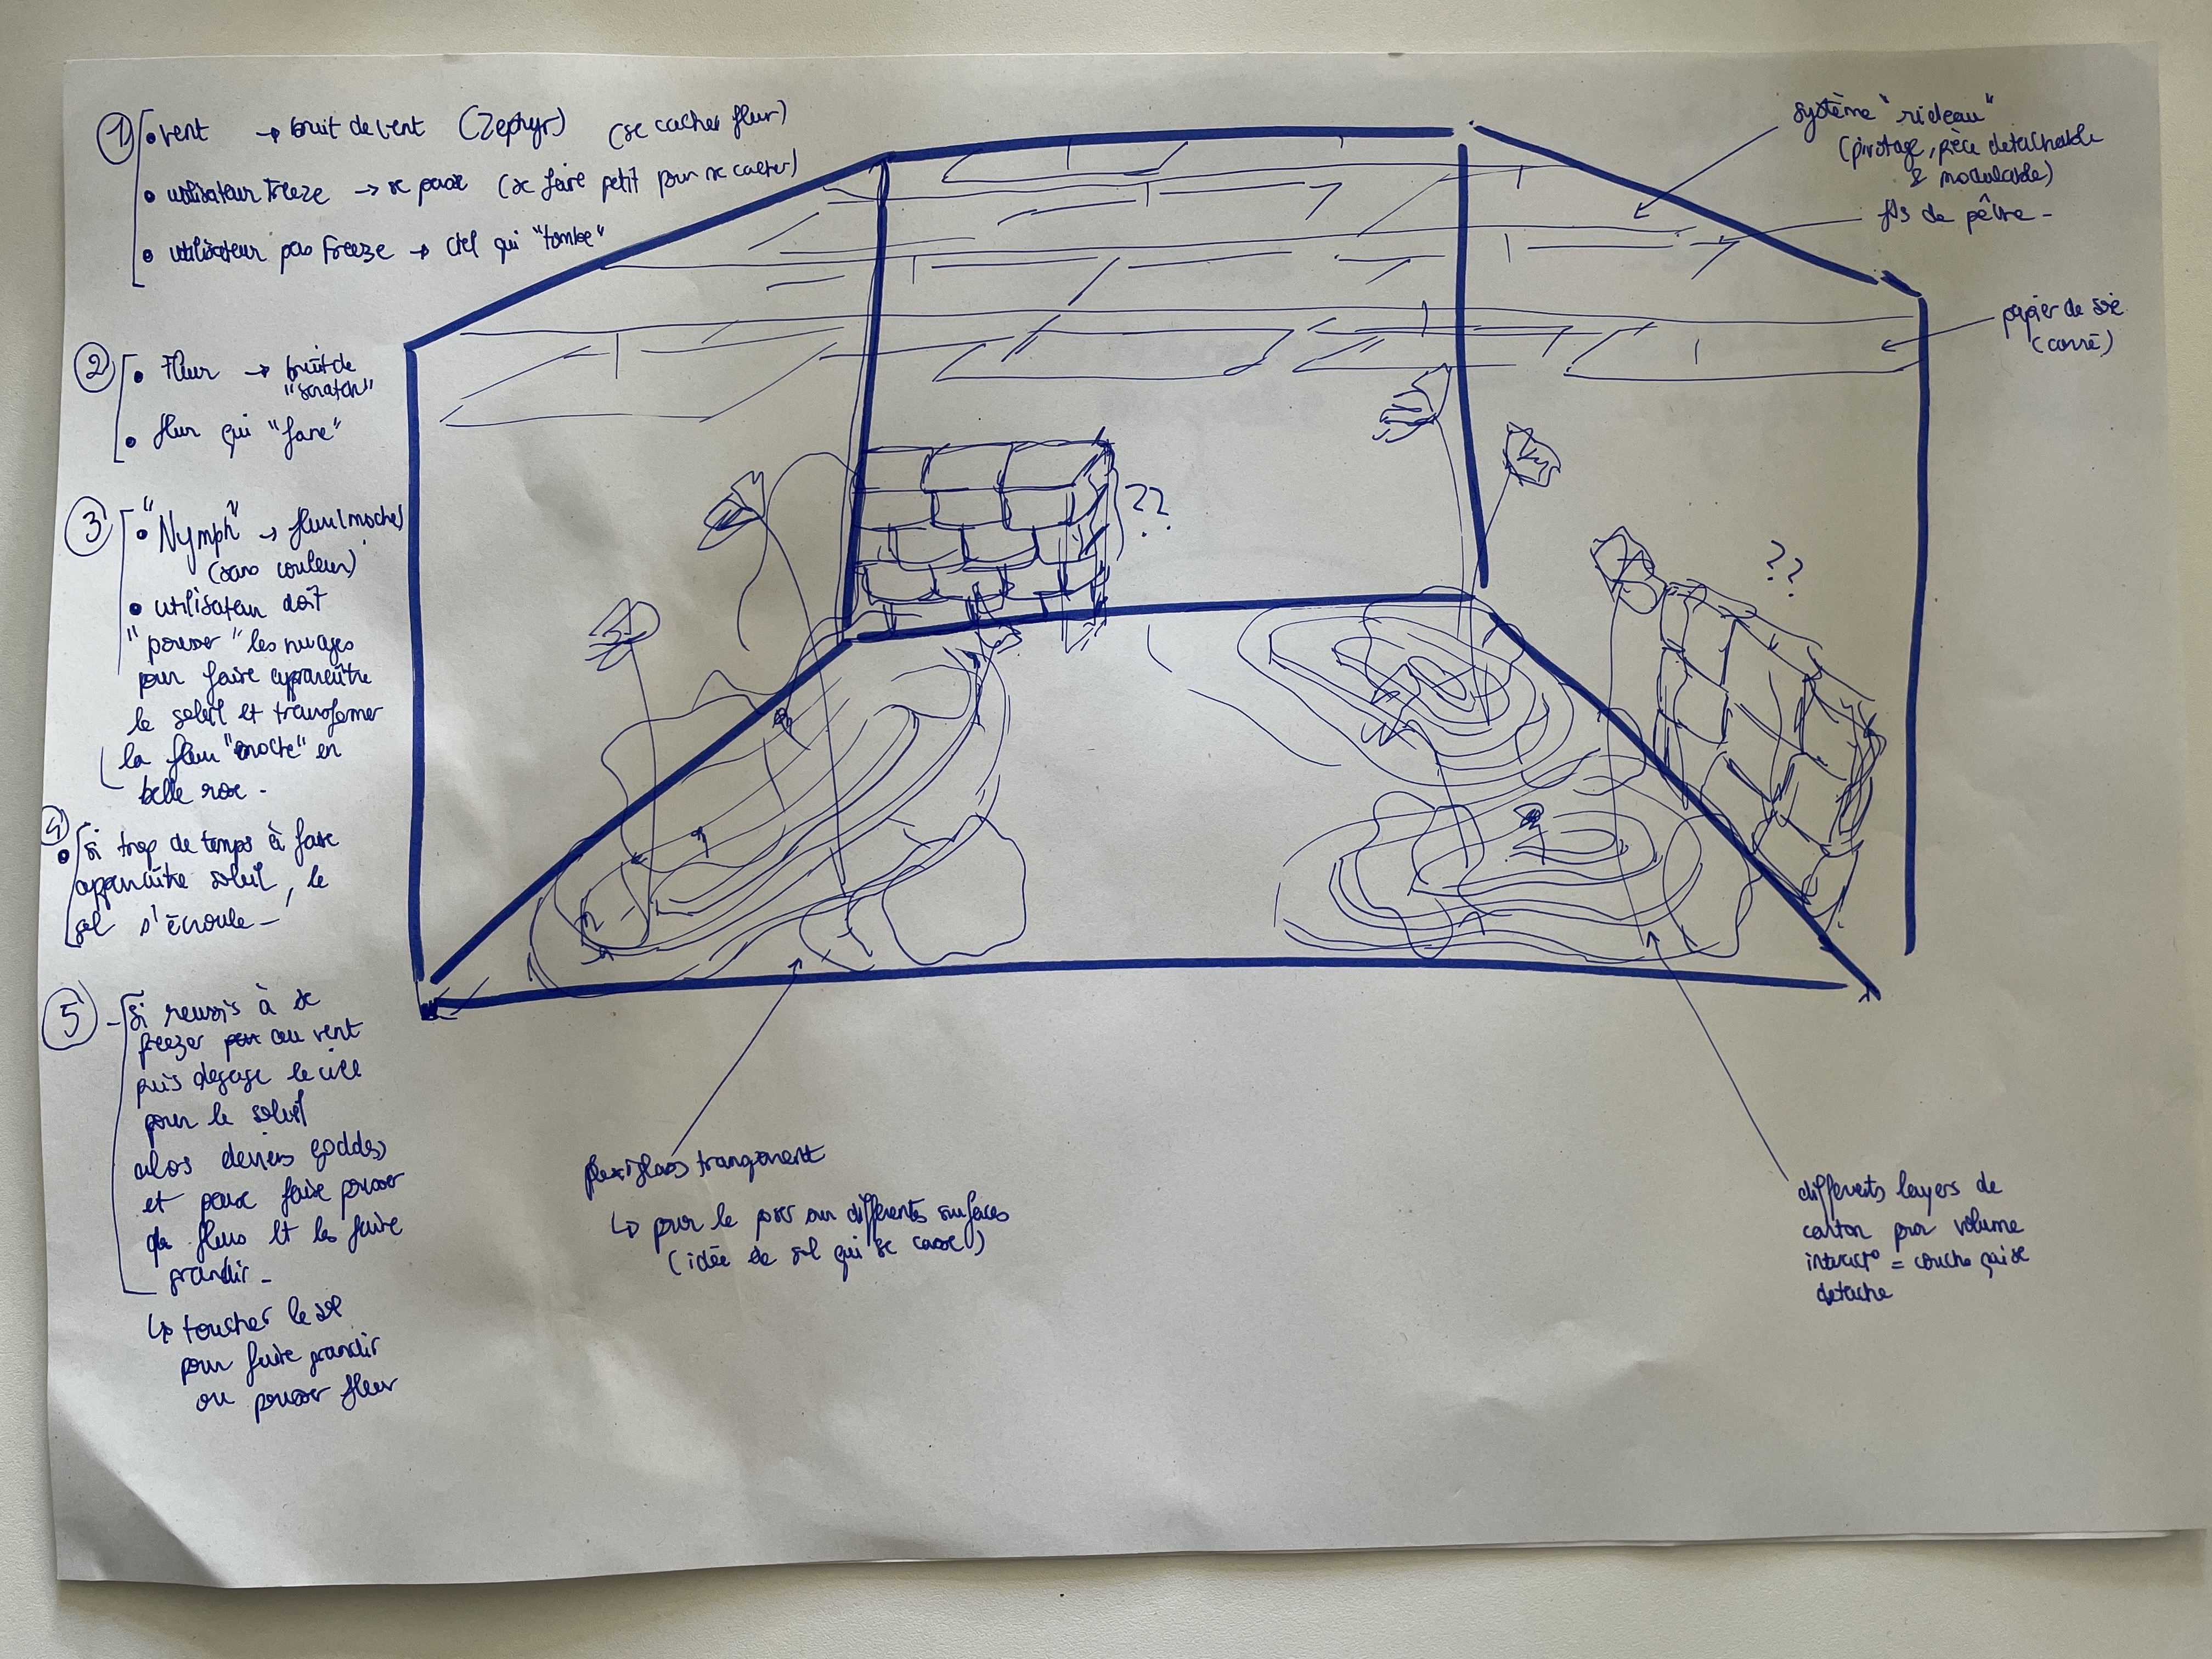 1
• vent → bruit de vent (Zephyr) (se cacher fleur)
• utilisateur Freeze → se passe (se faire petit pour se cacher)
• utilisateur pas Freeze → ciel qui "tombe"
2
• Fleur → bruit de
"scratch"
• fleur qui "fane"
3
• "Nymph" → fleur (moche)
(sans couleur)
• utilisateur doit
"pousser" les nuages
pour faire apparaître
le soleil et transformer
la fleur "moche" en
belle rose -
4
• Si trop de temps à faire
apparaître soleil, le
sol s'écroule -
5
- Si reussis à se
freezer au vent
puis degage le ciel
pour le soleil
alors deviens goddess
et peux faire pousser
des fleurs et les faire
grandir -
↳ toucher le sol
pour faire grandir
ou pousser fleur
système "rideau"
(pivotage, pièce detachable
& modulable)
fils de pêche -
papier de soie
(carré)
??
??
plexiglass transparent
↳ pour le poser sur différentes surfaces
(idée de sol qui se casse)
différents layers de
carton pour volume
interact° = couche qui se
detache